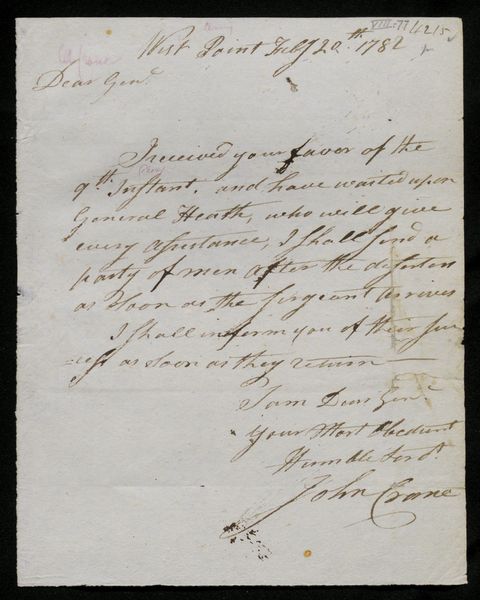 VIII-77 / 4215
Crane
West Point Feby 20th 1782
Dear Genl
I received your favor of the
9th Instant. and have waited upon
General Heath, who will give
every assistance, I shall send a
party of men after the deserters
as soon as the Sergeant arrives
I shall inform you of their suc-
-cess as soon as they return —
I am Dear Genl
Your Most Obedient
Humble Servt
John Crane